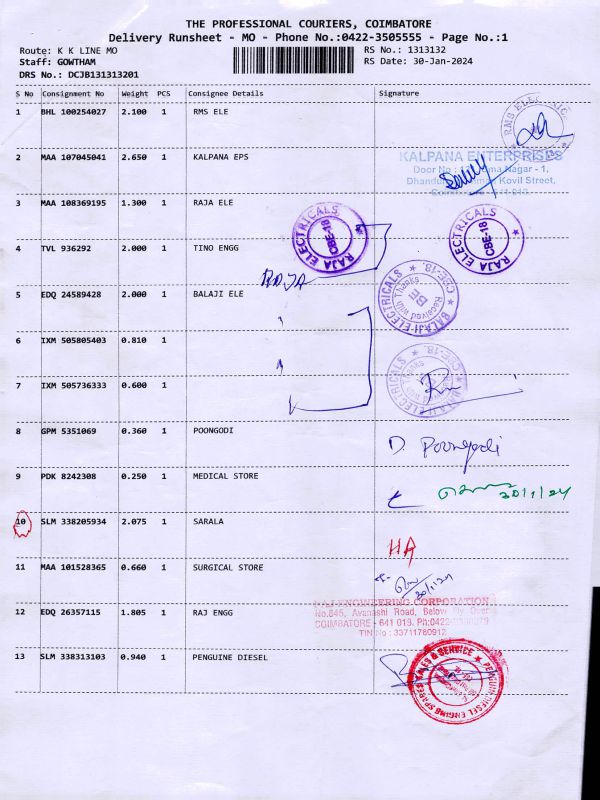 THE PROFESSIONAL COURIERS, COIMBATORE
Delivery Runsheet - MO - Phone No.:0422-3505555 - Page No.:1
Route: K K LINE MO RS No.: 1313132
Staff: GOWTHAM RS Date: 30-Jan-2024
DRS No.: DCJB131313201
S No Consignment No Weight PCS Consignee Details Signature
1 BHL 100254027 2.100 1 RMS ELE
RMS ELECTRIC
2 MAA 107045041 2.650 1 KALPANA EPS
KALPANA ENTERPRISES
Door No Nagar - 1,
Kovil Street,
3 MAA 108369195 1.300 1 RAJA ELE
RAJA ELECTRICALS CBE-18 RAJA ELECTRICALS CBE-18
4 TVL 936292 2.000 1 TINO ENGG
RAJA
5 EDQ 24589428 2.000 1 BALAJI ELE
BALAJI ELECTRICALS CBE-18. Received with Thanks
6 IXM 505805403 0.810 1
7 IXM 505736333 0.600 1
BALAJI ELECTRICALS
8 GPM 5351069 0.360 1 POONGODI
D. Poongodi
9 PDK 8242308 0.250 1 MEDICAL STORE
30/1/24
10 SLM 338205934 2.075 1 SARALA
HA
11 MAA 101528365 0.660 1 SURGICAL STORE
12 EDQ 26357115 1.805 1 RAJ ENGG
RAJ ENGINEERING CORPORATION
No.845, Avanashi Road, Below Fly Over
COIMBATORE - 641 018. Ph:0422
TIN No : 33711760912
13 SLM 338313103 0.940 1 PENGUINE DIESEL
PENGUIN DIESEL ENGINE SPARES SALES & SERVICE